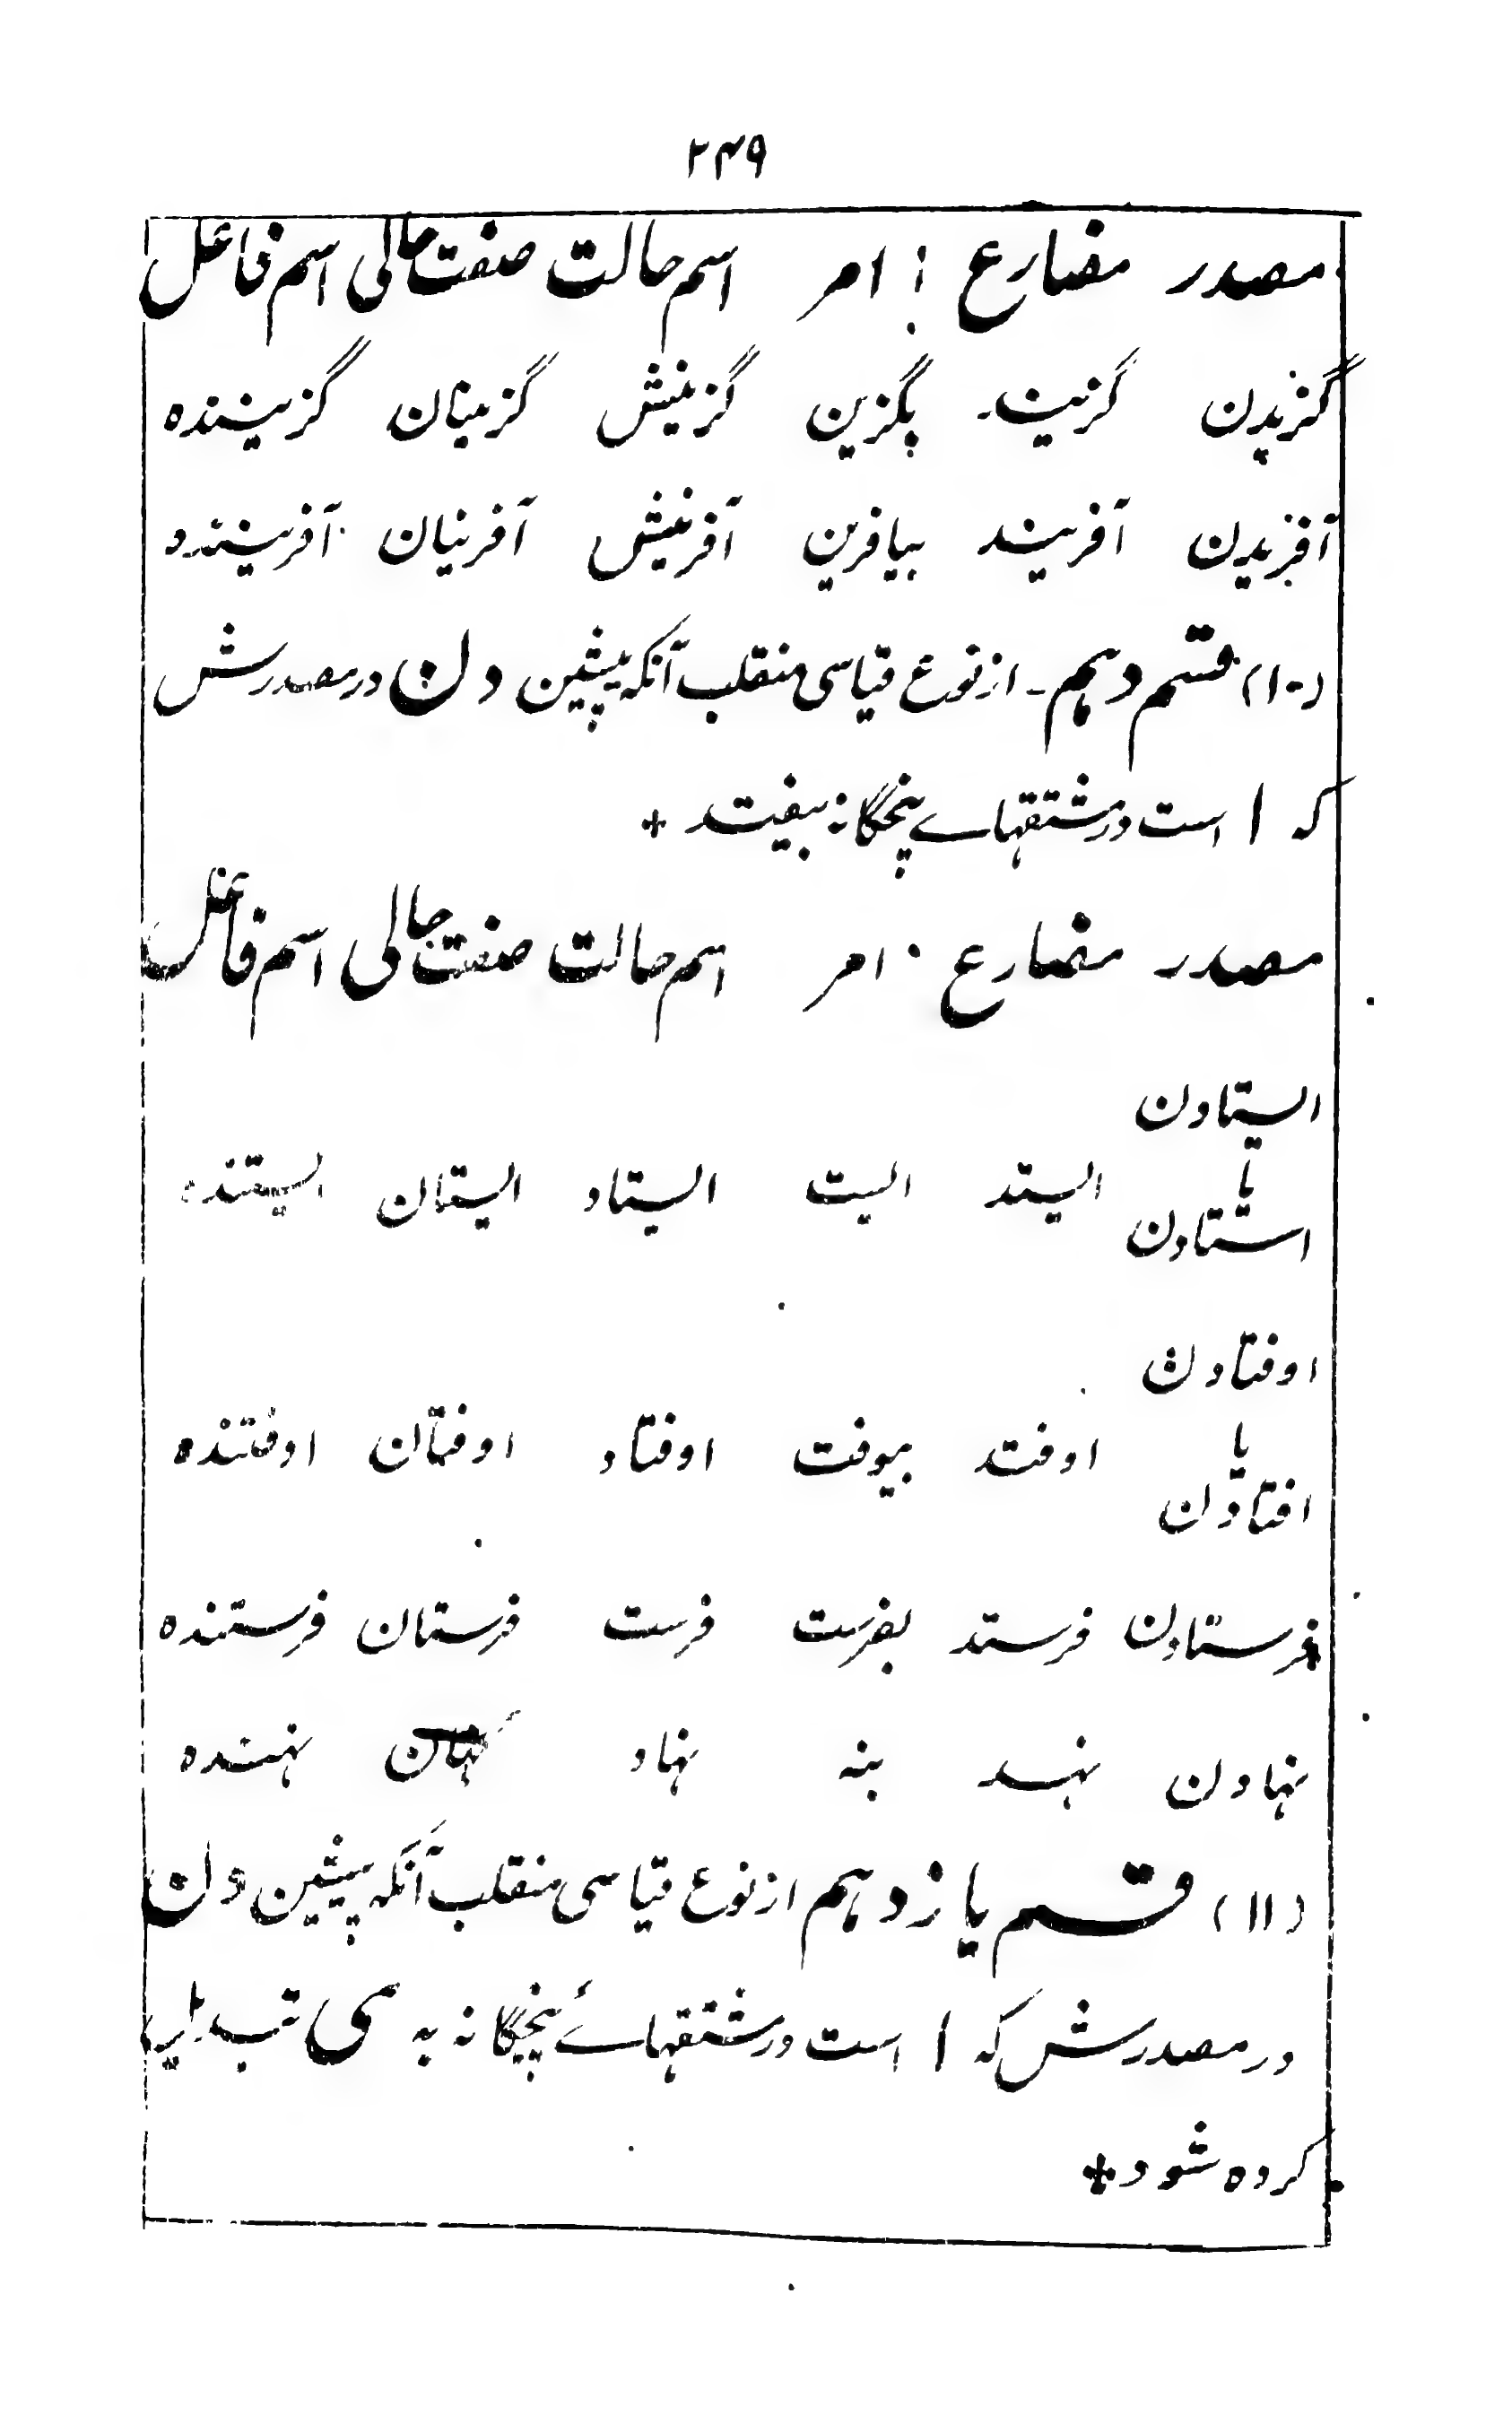 ۲۴۹
مصدر مضارع امر اسم حالت صفت حالی اسم فاعل
گزیدن گزیند بگزین گزینش گزینان گزیننده
آفریدن آفریند بیافرین آفرینش آفرینان آفریننده
(۱۰) قسم دہم - از نوع قیاسی منقلب آنکہ پیشین دن در مصدرش
کہ ا است در مشتقہاے پنجگانہ بیفتد +
مصدر مضارع امر اسم حالت صفت حالی اسم فاعل
ایستادن
یا
ایستد ایست ایستاد ایستان ایستنده
استادن
اوفتادن
یا
اوفتد بیوفت اوفتاد اوفتان اوفتنده
افتادن
فرستادن فرستد بفرست فرست فرستان فرستنده
نہادن نہد بنہ نہاد نہان نہنده
(۱۱) قسم یازدہم از نوع قیاسی منقلب آنکہ پیشین دن
در مصدرش کہ ا است در مشتقہائے پنجگانہ بہ ی تبدیل
کرده شود +